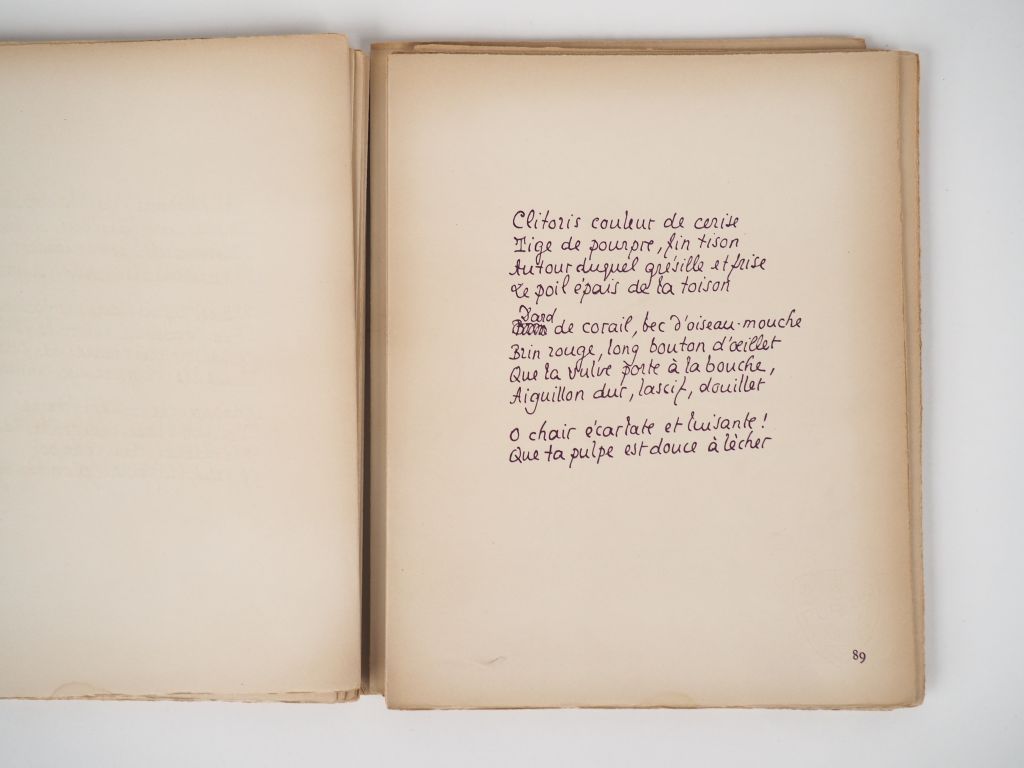 Clitoris couleur de cerise
Tige de pourpre, fin tison
Autour duquel grésille et frise
Le poil épais de la toison
Dard
de corail, bec d'oiseau-mouche
Brin rouge, long bouton d'œillet
Que la vulve porte à la bouche,
Aiguillon dur, lascif, douillet
O chair écarlate et luisante !
Que ta pulpe est douce à lècher
89